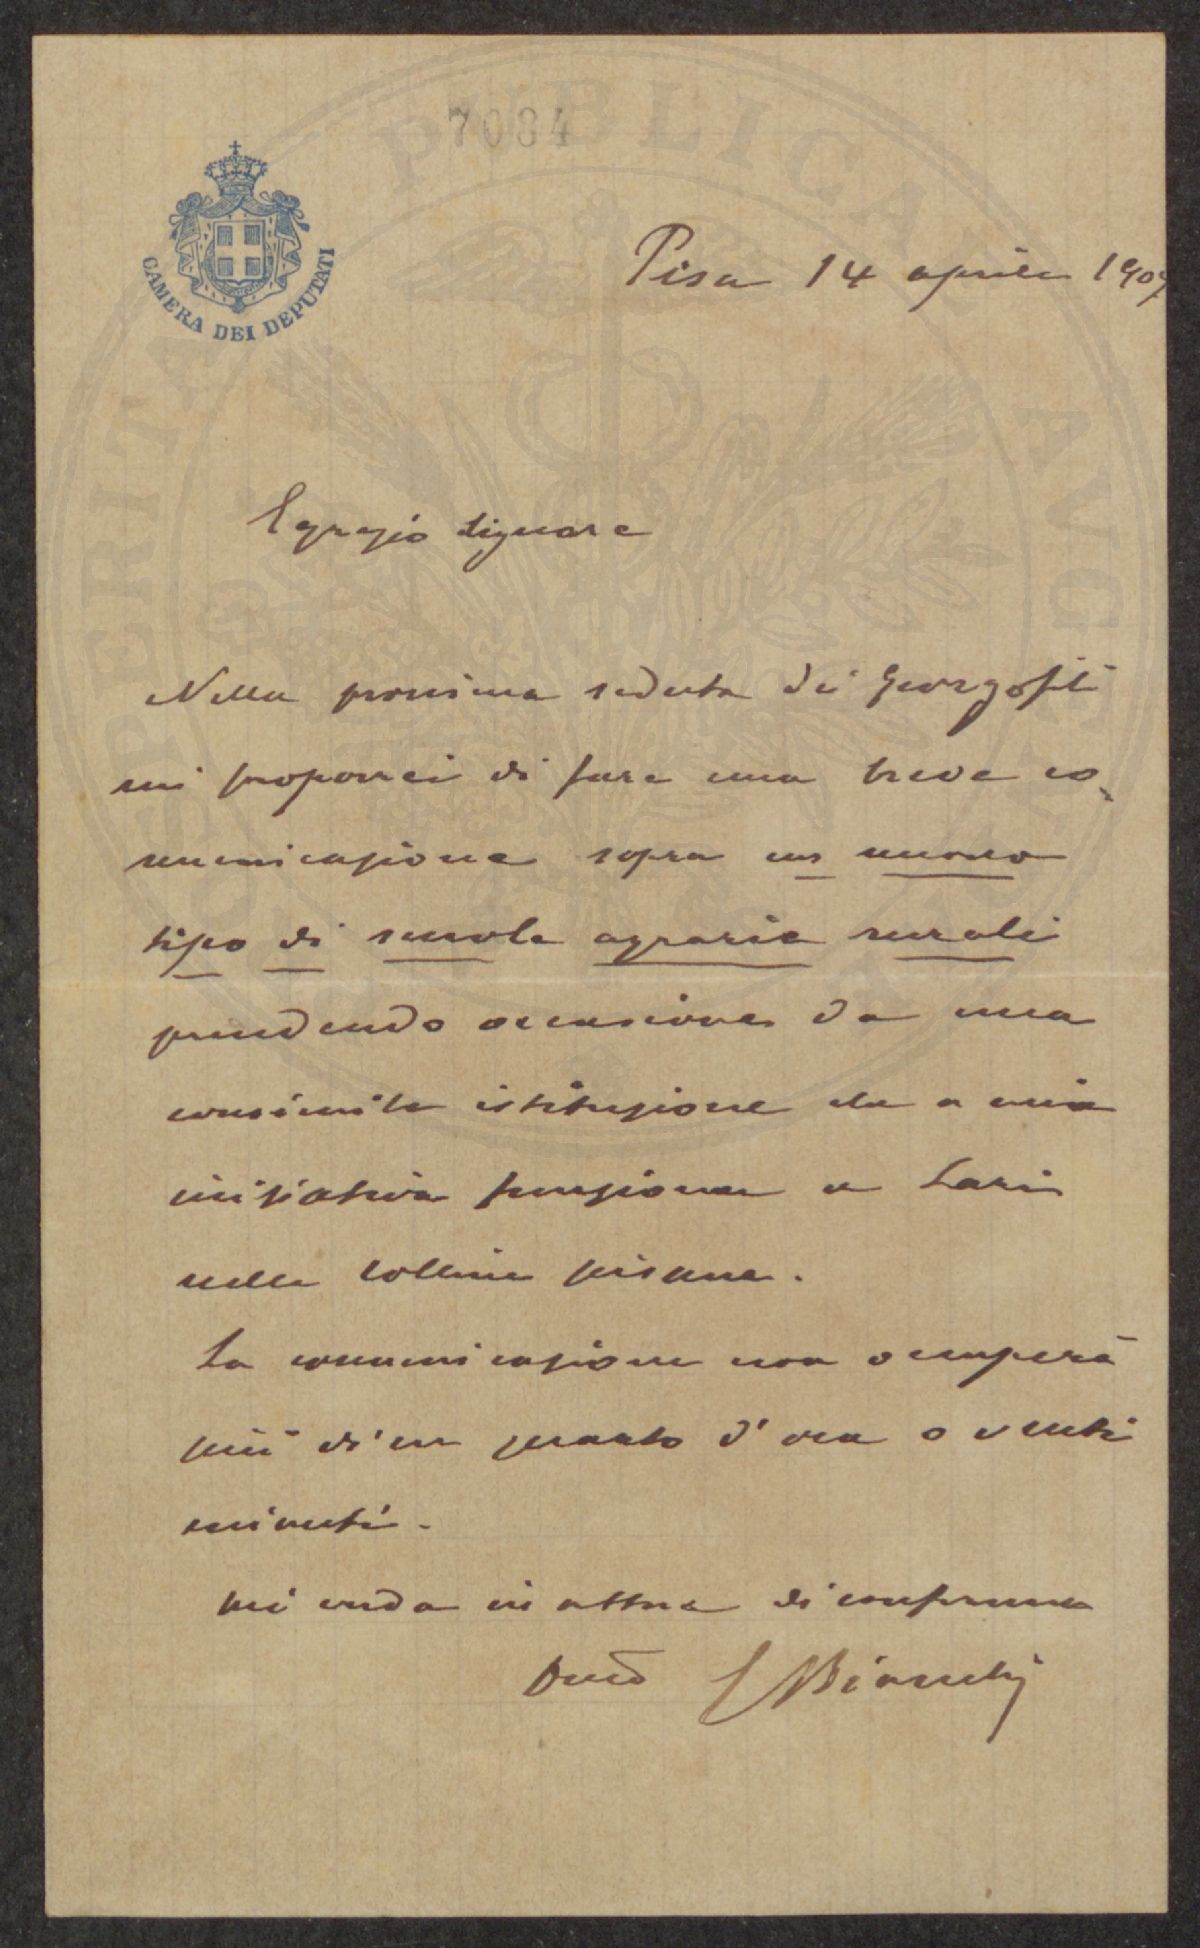 7084
CAMERA DEI DEPUTATI
Pisa 14 aprile 1907
Egregio Signore
Nella prossima seduta dei Georgofili
mi proporrei di fare una breve co-
municazione sopra un nuovo
tipo di scuole agrarie rurali
prendendo occasione da una
consimile istituzione che a mia
iniziativa funziona a Lari
nelle colline pisane.
La comunicazione non occuperà
più di un quarto d'ora o venti
minuti.
Mi creda in attesa di conferma
Devmo Bianchi
PROSPERITATI PUBLICAE AUGENDAE